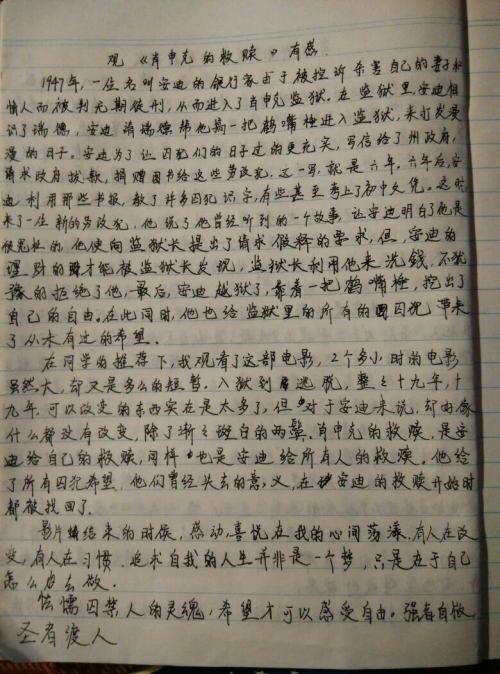 观《肖申克的救赎》有感
1947年，一位名叫安迪的银行家由于被控诉杀害自己的妻子和
情人而被判无期徒刑，从而进入了肖申克监狱。在监狱里，安迪相
识了瑞德，安迪请瑞德帮他搞一把鹤嘴锤进入监狱，来打发漫
漫的日子。安迪为了让囚犯们的日子过的更充实，写信给了州政府，
请求政府拨款，捐赠图书给这些劳改犯，这一写，就是六年。六年后，安
迪利用那些书报，教了许多囚犯识字，有些甚至考上了初中文凭。这时
来了一位新的劳改犯，他说了他曾经听到的一个故事，让安迪明白了他是
被冤枉的，他便向监狱长提出了请求假释的要求，但，安迪的
理财的才能被监狱长发现，监狱长利用他来洗钱，不犹
豫的拒绝了他，最后，安迪越狱了，靠着一把鹤嘴锤，挖出了
自己的自由，在此同时，他也给监狱里的所有的囚犯带来
了从未有过的希望。
在同学的推荐下，我观看了这部电影，2个多小时的电影
虽然大，却又是多么的短暂。入狱到逃脱，整整十九年，十
九年，可以改变的东西实在是太多了，但对于安迪来说，却由像
什么都没有改变，除了渐渐斑白的两鬓。肖申克的救赎，是安
迪给自己的救赎，同样也是安迪给所有人的救赎。他给
了所有囚犯希望，他们曾经失去的意义，在安迪的救赎开始时
都被找回了。
影片结束的时候，感动，喜悦在我的心间荡漾，有人在改
变，有人在习惯，追求自我的人生并非是一个梦，只是在于自己
怎么去做。
怯懦囚禁人的灵魂，希望才可以感受自由。强者自救，
圣者渡人